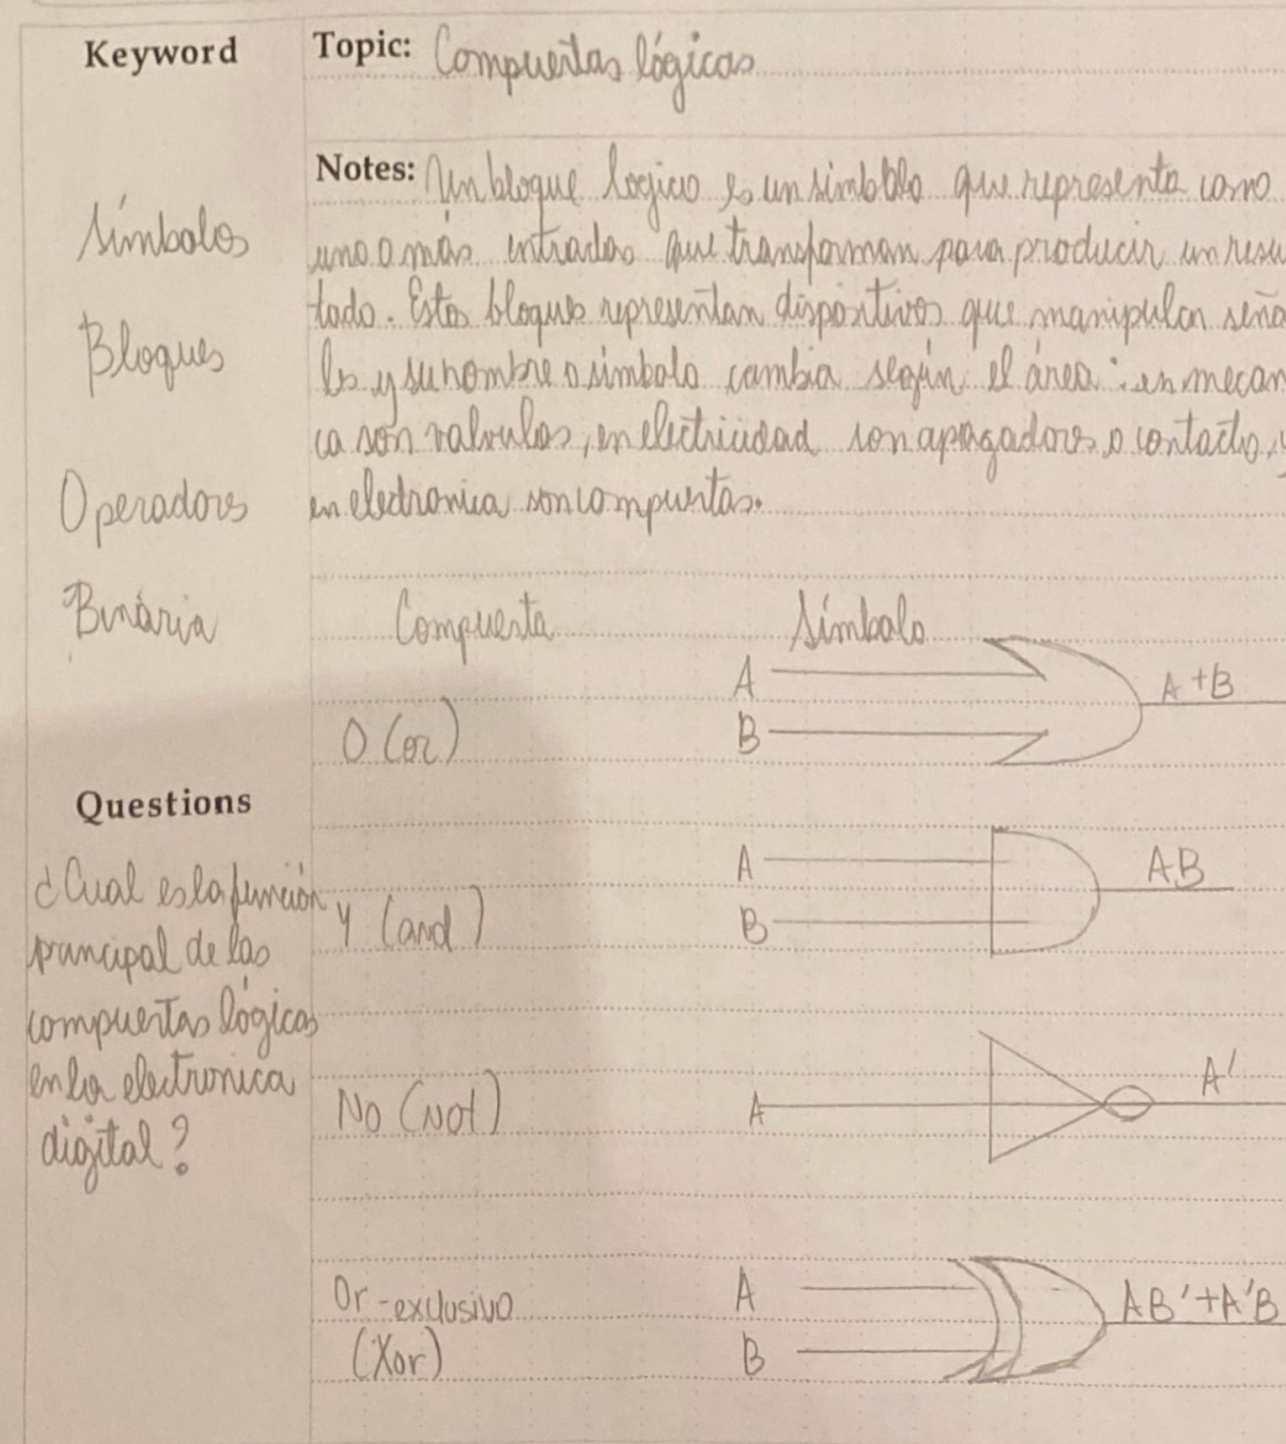 Keyword
Símbolos
Bloques
Operadores
Binária
Questions
¿Cual es la función
principal de las
compuertas lógicas
en la electronica
digital?
Topic: Compuertas lógicas
Notes: Un bloque logico es un simbolo que representa como
uno o más entradas que transforman para producir un resu
tado. Estos bloques representan dispositivos que manipulan seña
les y su nombre o simbolo cambia según el área: en mecan
ca son valvulas, en electricidad son apagadores o contacto, y
en electronica son compuertas.
Compuerta Símbolo
O (or) A B A+B
Y (and) A B AB
No (not) A A'
Or-exclusivo
(Xor) A B AB'+A'B